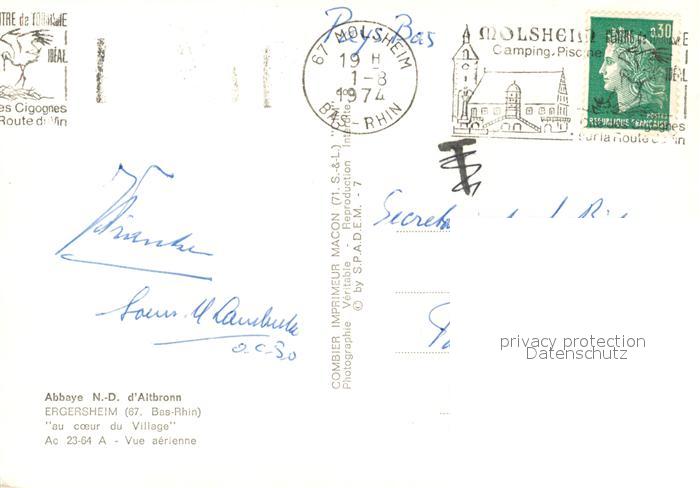 TRE de TOURISME
IDÉAL
es Cigognes
Route du Vin
Pays Bas
67 MOLSHEIM
19 H
1-8
1974
BAS-RHIN
MOLSHEIM
Camping. Piscine
IDÉAL
Cigognes
sur la Route du Vin
0,30
POSTES
REPUBLIQUE FRANÇAISE
T
COMBIER IMPRIMEUR MACON (71. S.-&-L.) "
Photographie Véritable - Reproduction Interdite
© by S.P.A.D.E.M. - 7
privacy protection
Datenschutz
Soeur M
o.c.so
Abbaye N.-D. d'Altbronn
ERGERSHEIM (67. Bas-Rhin)
"au cœur du Village"
Ac 23-64 A - Vue aérienne